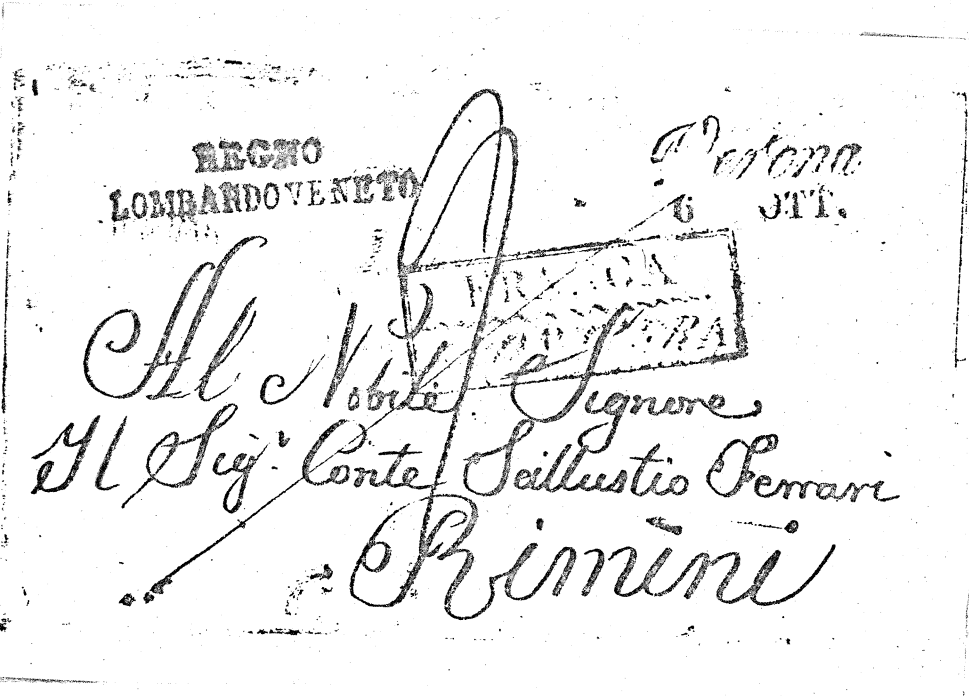 REGNO
LOMBARDOVENETO
Verona
6 OTT.
Al Nobile Signore
Il Sigr. Conte Sallustio Ferrari
Rimini